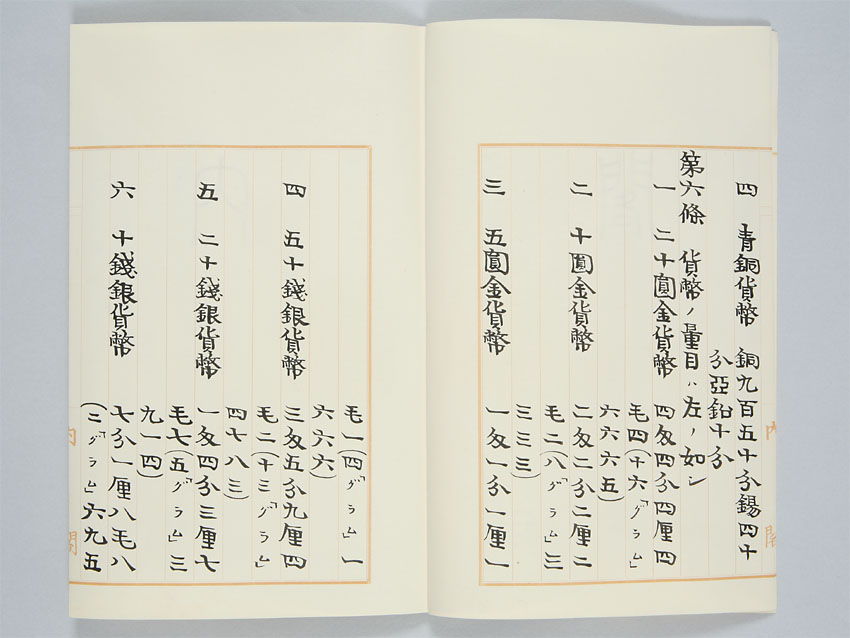 四　青銅貨幣　銅九百五十分錫四十
分亞鉛十分
第六條　貨幣ノ量目ハ左ノ如シ
一　二十圓金貨幣　四匁四分四厘四
毛四(十六「グラム」
六六六五)
二　十圓金貨幣　二匁二分二厘二
毛二(八「グラム」三
三三三)
三　五圓金貨幣　一匁一分一厘一
毛一(四「グラム」一
六六六)
四　五十錢銀貨幣　三匁五分九厘四
毛二(十三「グラム」
四七八三)
五　二十錢銀貨幣　一匁四分三厘七
毛七(五「グラム」三
九一四)
六　十錢銀貨幣　七分一厘八毛八
(二「グラム」六九五
内閣
内閣